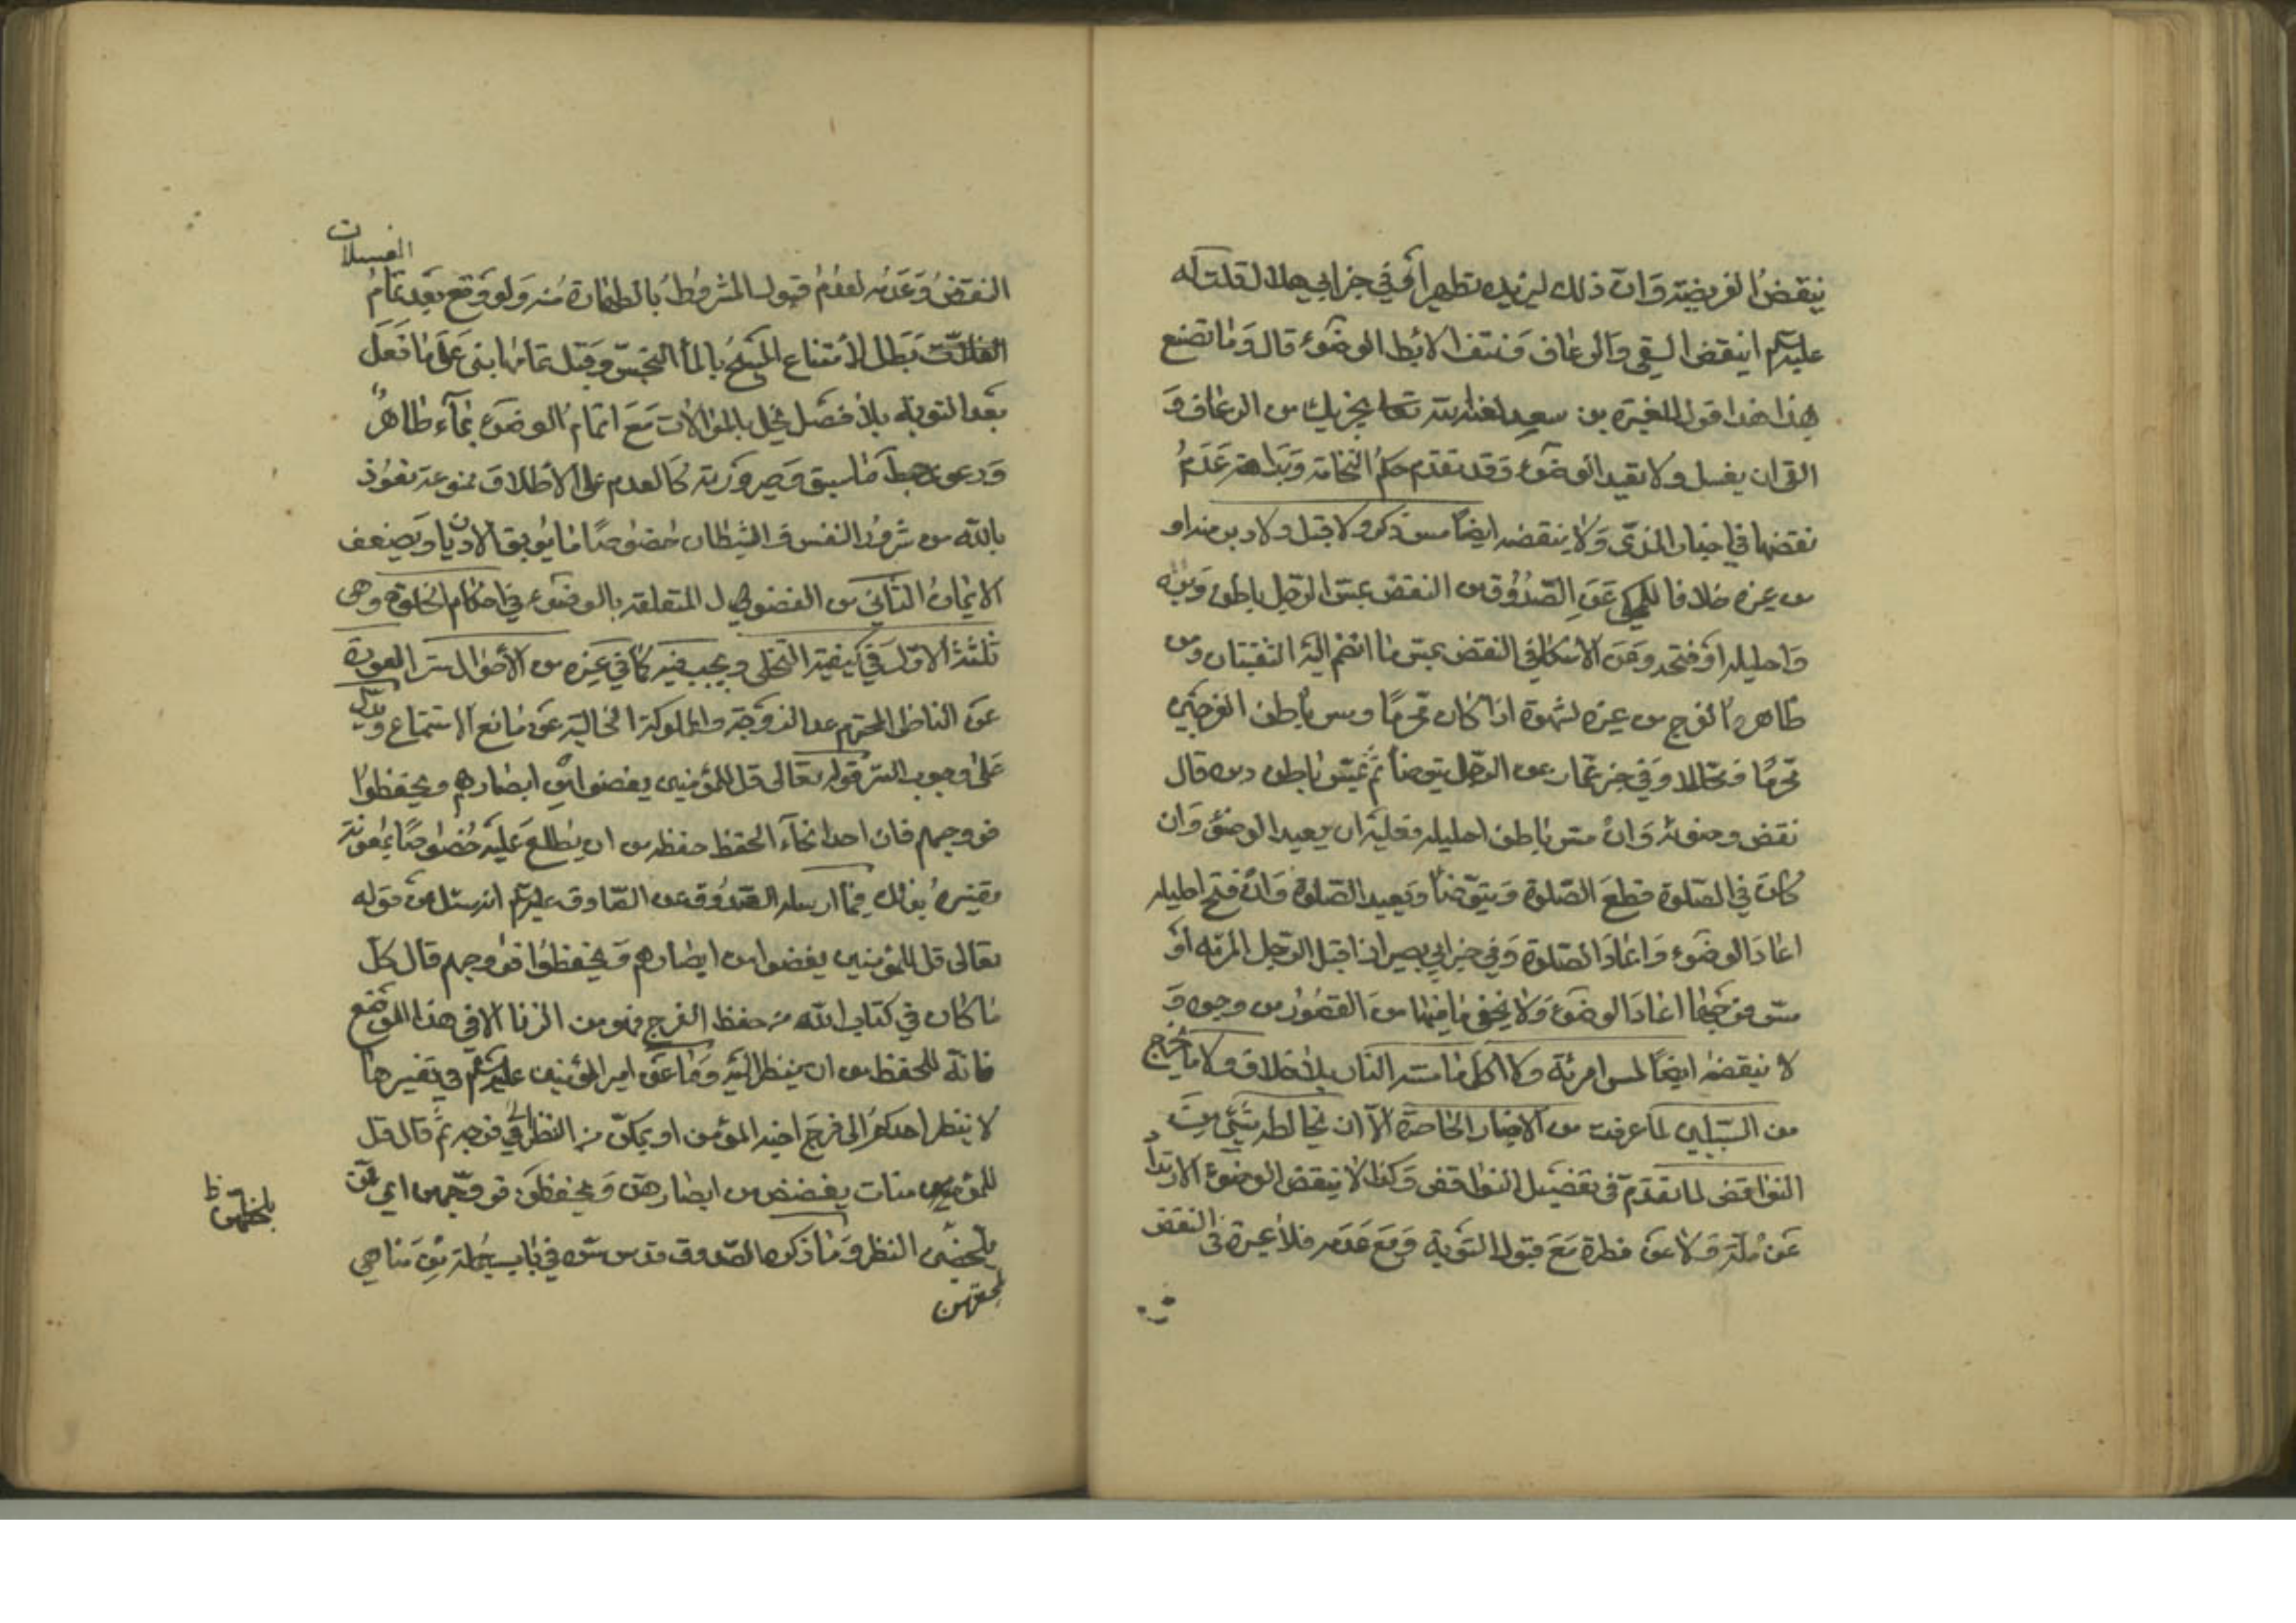 ينقض الفريضة وان ذلك ليزيده تطهيرا وفي خبر ابي هلال قلت له
عليه السلم اينقض القي والرعاف ونتف الابط الوضوء قال وما تصنع
بهذا هذا قول المغيرة بن سعيد لعنه الله تعا يجزيك من الرعاف و
القي ان يغسل ولا يعيد الوضوء وقد تقدم حكم النخامة عدم
نقضها في اخبار المذي ولا ينقضه ايضا مس ذكر ولا قبل ولا دبر منه او
من غيره خلافا للمحكي عن الصدوق من النقض بمس الرجل باطن دبره
واحليله او فتحه وعن الاسكافي النقض بمس ما انضم اليه الثقبتان ومس
ظاهر الفرج من غيره لشهوة اذا كان محرما ومس باطن الفرجين
محرما ومحللا وفي خبر عمار عن الرجل يتوضأ ثم يمس باطن دبره قال
نقض وضوئه وان مس باطن احليله فعليه ان يعيد الوضوء وان
كان في الصلوة قطع الصلوة ويتوضأ ويعيد الصلوة وان فتح احليله
اعاد الوضوء واعاد الصلوة وفي خبر ابي بصير اذا قبل الرجل المرئه او
مس فرجها اعاد الوضوء ولا يخفى ما فيها من القصور من وجوه و
لا ينقضه ايضا لمس امرئة ولا اكل ما مسته النار بلا خلاف ولا ما يخرج
من السبيلين لما عرفت من الاخبار الحاصرة الا ان يخالطه شيء من
النواقض لما تقدم في تفصيل النواقض وكذا لا ينقض الوضوء الارتداد
عن ملة ولا عن فطرة مع قبول التوبة ومع عدمه فلا عبرة في النقض
النقض وعدمه لعدم قبول المشروط بالطهارة منه ولو وقع بعد تمام
الغسلات
بطل لامتناع المسح بالماء النجس وقبل تمامها بنى على ما فعل
بعد التوبه بلا فصل يخل بالموالات مع اتمام الوضوء بماء طاهر
ودعوى حبط ما سبق وصيرورته كالعدم على الاطلاق ممنوعة نعوذ
بالله من شرور النفس والشيطان خصوصا ما يوبق الاديان ويضعف
الايمان الثاني من الفصول المتعلقة بالوضوء في احكام الخلوة وهي
ثلثة الاول في كيفية التخلي ويجب فيه كما في غيره من الأحوال ستر العورة
عن الناظر المحترم عدا الزوجة والمملوكة الخالية عن مانع الاستمتاع ويدل
على وجوب الستر قوله تعالى قل للمؤمنين يغضوا من ابصارهم ويحفظوا
فروجهم فان احد انحاء الحفظ حفظه من ان يطلع عليه خصوصا بمعونة
تفسيره بذلك فيما ارسله الصدوق عن الصادق عليه السلم انه سئل عن قوله
تعالى قل للمؤمنين يغضوا من ابصارهم ويحفظوا فروجهم قال كل
ما كان في كتاب الله من حفظ الفرج فهو من الزنا الا في هذا الموضع
فانه للحفظ من ان ينظر اليه وما عن امير المؤمنين عليه السلم في تفسيرها
لا ينظر احدكم الى فرج اخيه المؤمن او يمكنه من النظر الى فرجه ثم قال قل
للمؤمنات يغضضن من ابصارهن ويحفظن فروجهن اي ممن
يلحقهن النظر وما ذكره الصدوق قدس سره في باب جملة من مناهي
يلحقهن